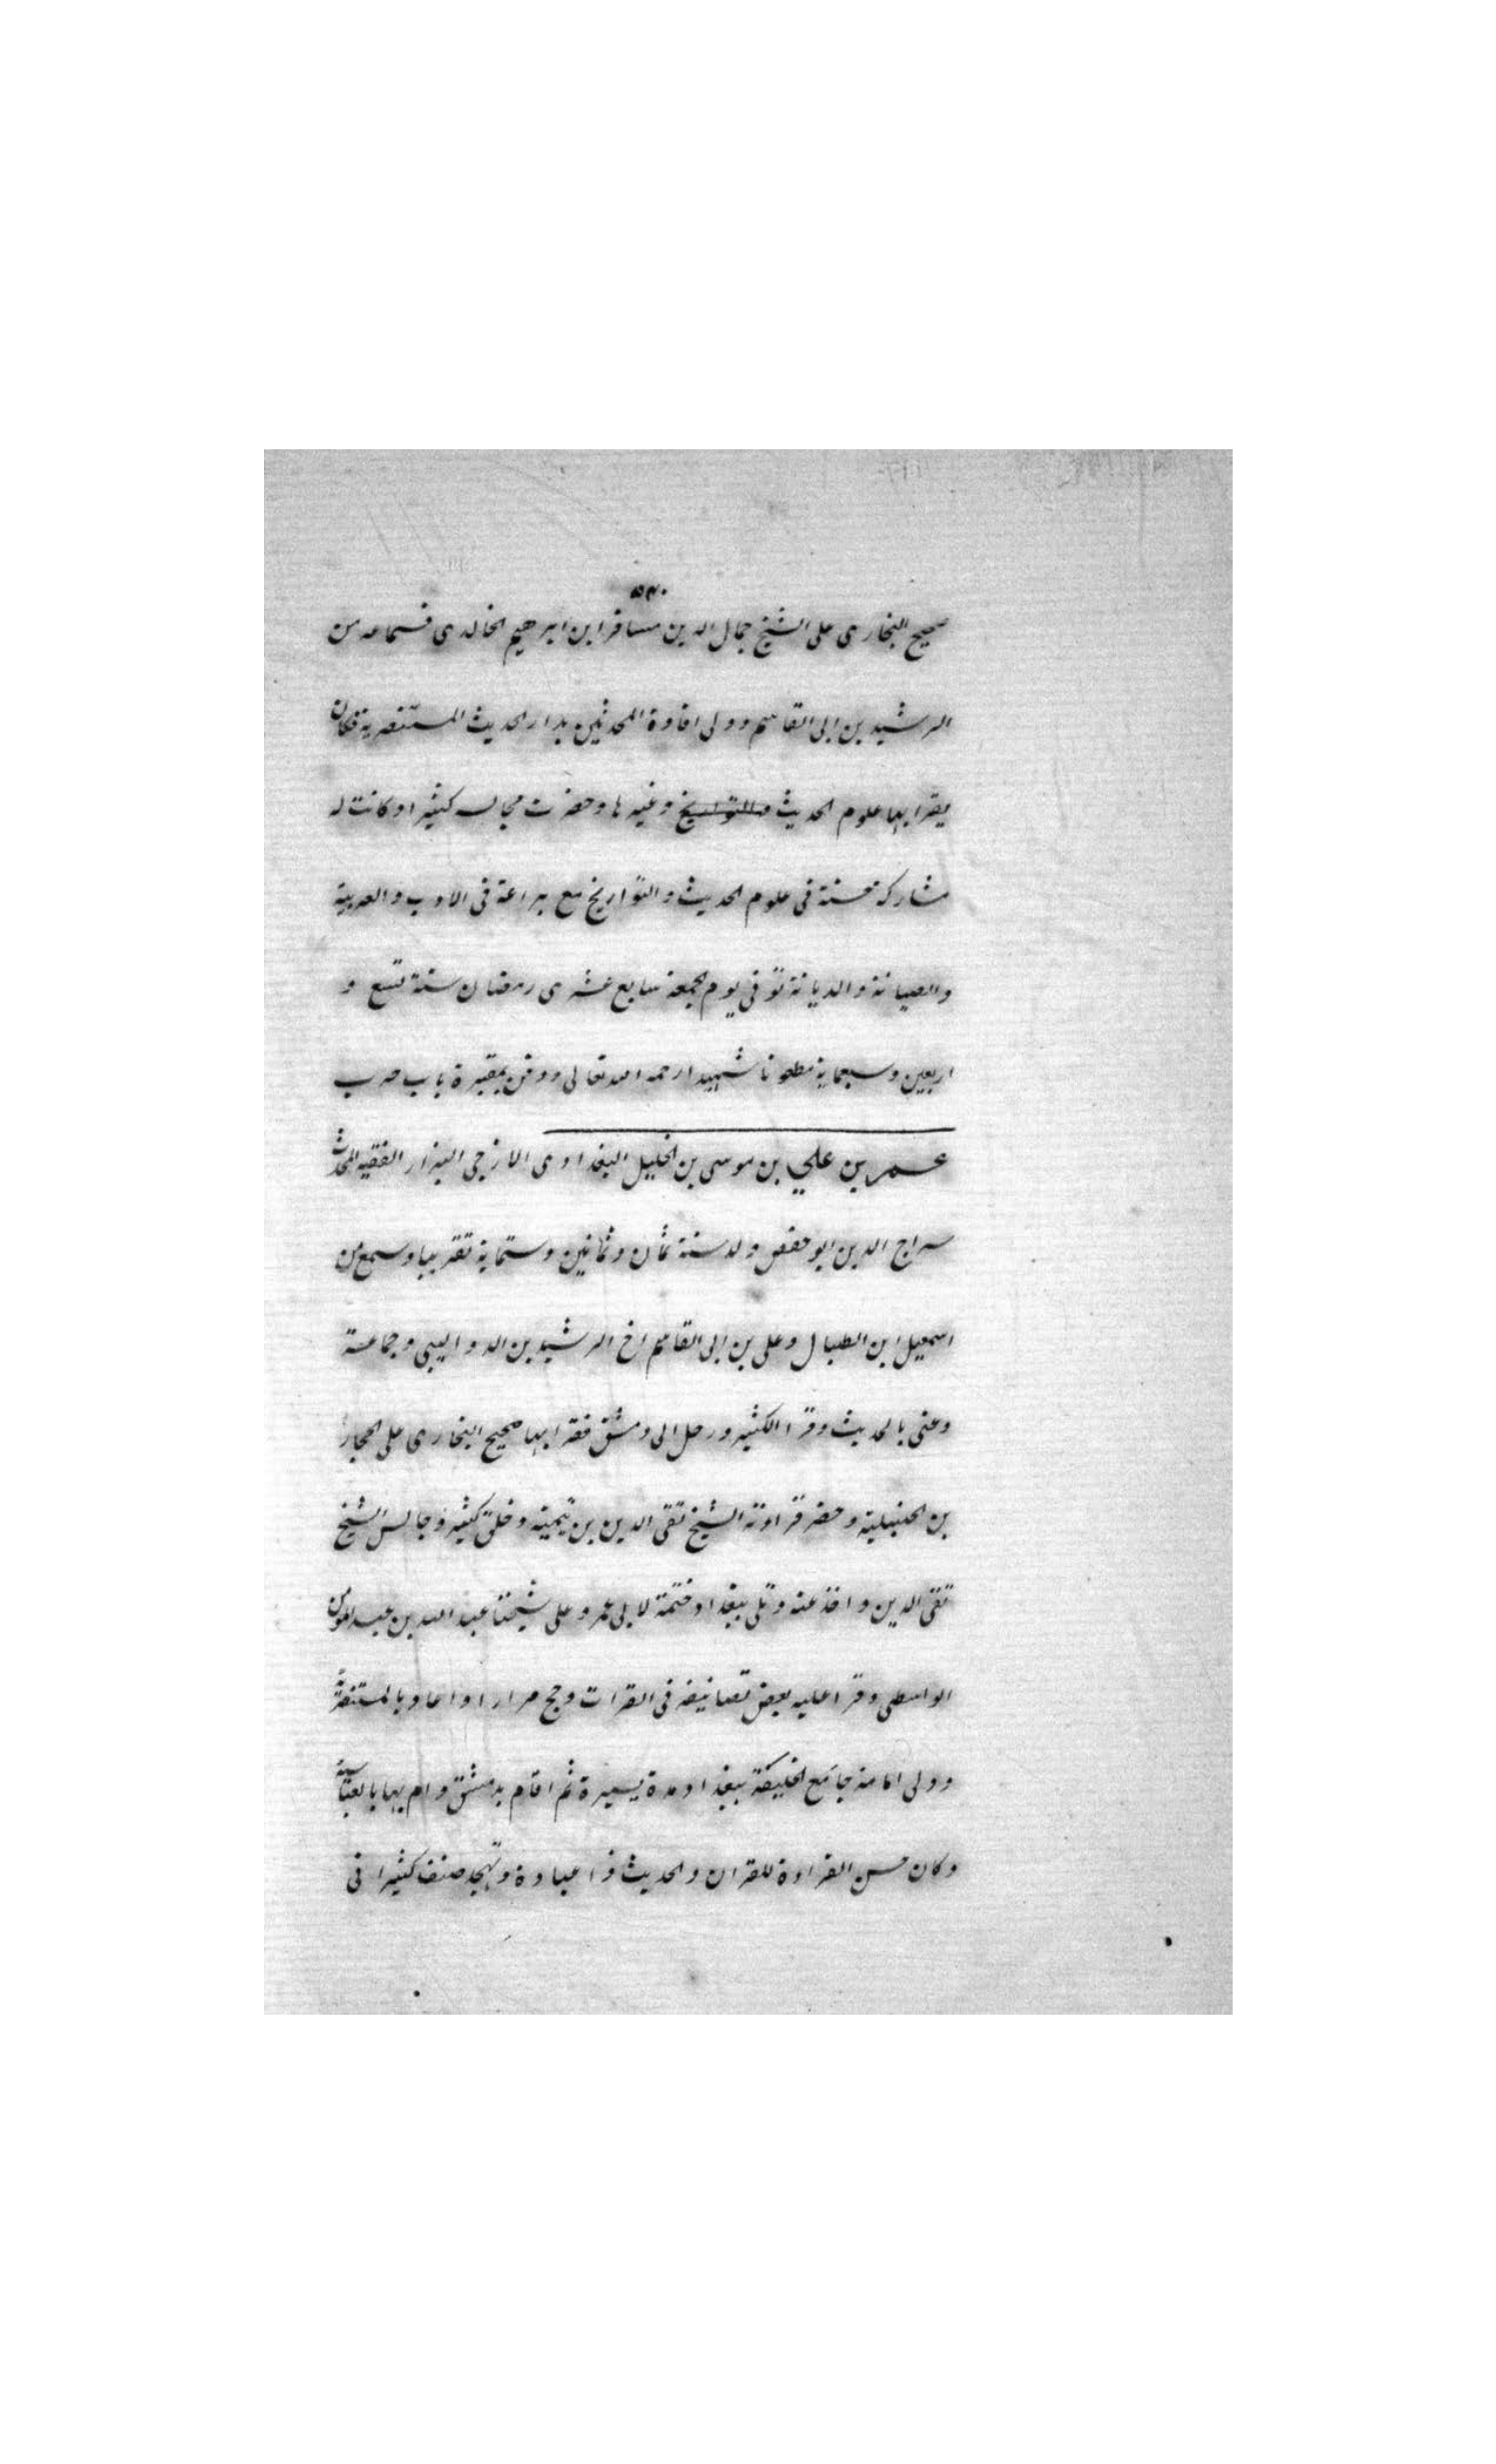 ٥٣٠
صحيح البخارى على الشيخ جمال الدين مسافر ابن ابرهيم الخالدى بسماعه من
الرشيد بن ابى القاسم وولى افادة المحدثين بدار الحديث المستنصرية فكان
يقرا بها علوم الحديث والتواريخ وغيرها وحضرت مجالسه كثيرا وكانت له
مشاركة حسنة فى علوم الحديث والتواريخ مع براعة فى الادب والعربية
والصيانة والديانة توفى يوم الجمعة سابع عشرى رمضان سنة تسع و
اربعين وسبعماية مطعونا شهيدا رحمه الله تعالى ودفن بمقبرة باب حرب
عمر بن علي بن موسى بن الخليل البغدادى الازجى البزار الفقيه المحدث
سراج الدين ابو حفص ولد سنة ثمان وثمانين وستماية تقريبا وسمع من
اسمعيل ابن الطبال وعلى بن ابى القاسم اخ الرشيد بن الدواليبى وجماعة
وعنى بالحديث وقرا الكثير ورحل الى دمشق فقرا بها صحيح البخارى على الحجار
بن الحنبلية وحضر قراءته الشيخ تقى الدين بن تيمية وخلق كثير وجالس الشيخ
تقى الدين واخذ عنه وتلى ببغداد ختمة لابى عمرو على شيخنا عبد الله بن عبد المومن
الواسطى وقرا عليه بعض تصانيفه فى القرات وحج مرارا واعاد بالمستنصرية
وولى امامة جامع الخليفة ببغداد مدة يسيرة ثم اقام بدمشق وام بها بالعتابية
وكان حسن القراءة للقران والحديث ذا عبادة وتهجد صنف كثيرا فى